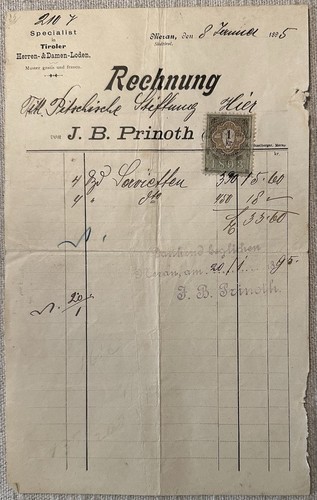 2107
Specialist
in
Tiroler
Herren- & Damen-Loden.
Muster gratis und franco.
Meran, den 8 Januar 1895
Rechnung
Titl. Pitschische Stiftung Hier
von J. B. Prinoth
1
4 Dzd Servietten 390 15.60
4 " dto 450 18 -
fl 33.60
dankend beglichen
Meran, am 20/1 95.
J. B. Prinoth.
20/1